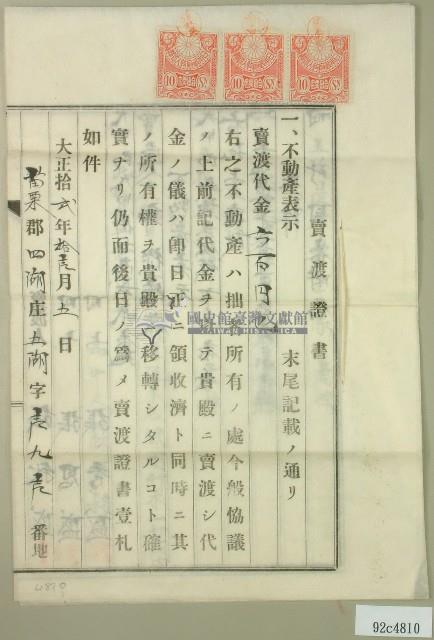 賣渡證書
一、不動產表示 末尾記載ノ通リ
賣渡代金六百円也
右之不動產ハ拙者所有ノ處今般協議
ノ上前記代金ヲ以テ貴殿ニ賣渡シ代
金ノ儀ハ卽日正ニ領收濟ト同時ニ其
ノ所有權ヲ貴殿ヘ移轉シタルコト確
實ナリ仍而後日ノ爲メ賣渡證書壹札
如件
大正拾弍年拾壱月五日
苗栗郡四湖庄五湖字壱九壱番地
10 10 10
國史館臺灣文獻館
TAIWAN HISTORICA
4810
92c4810